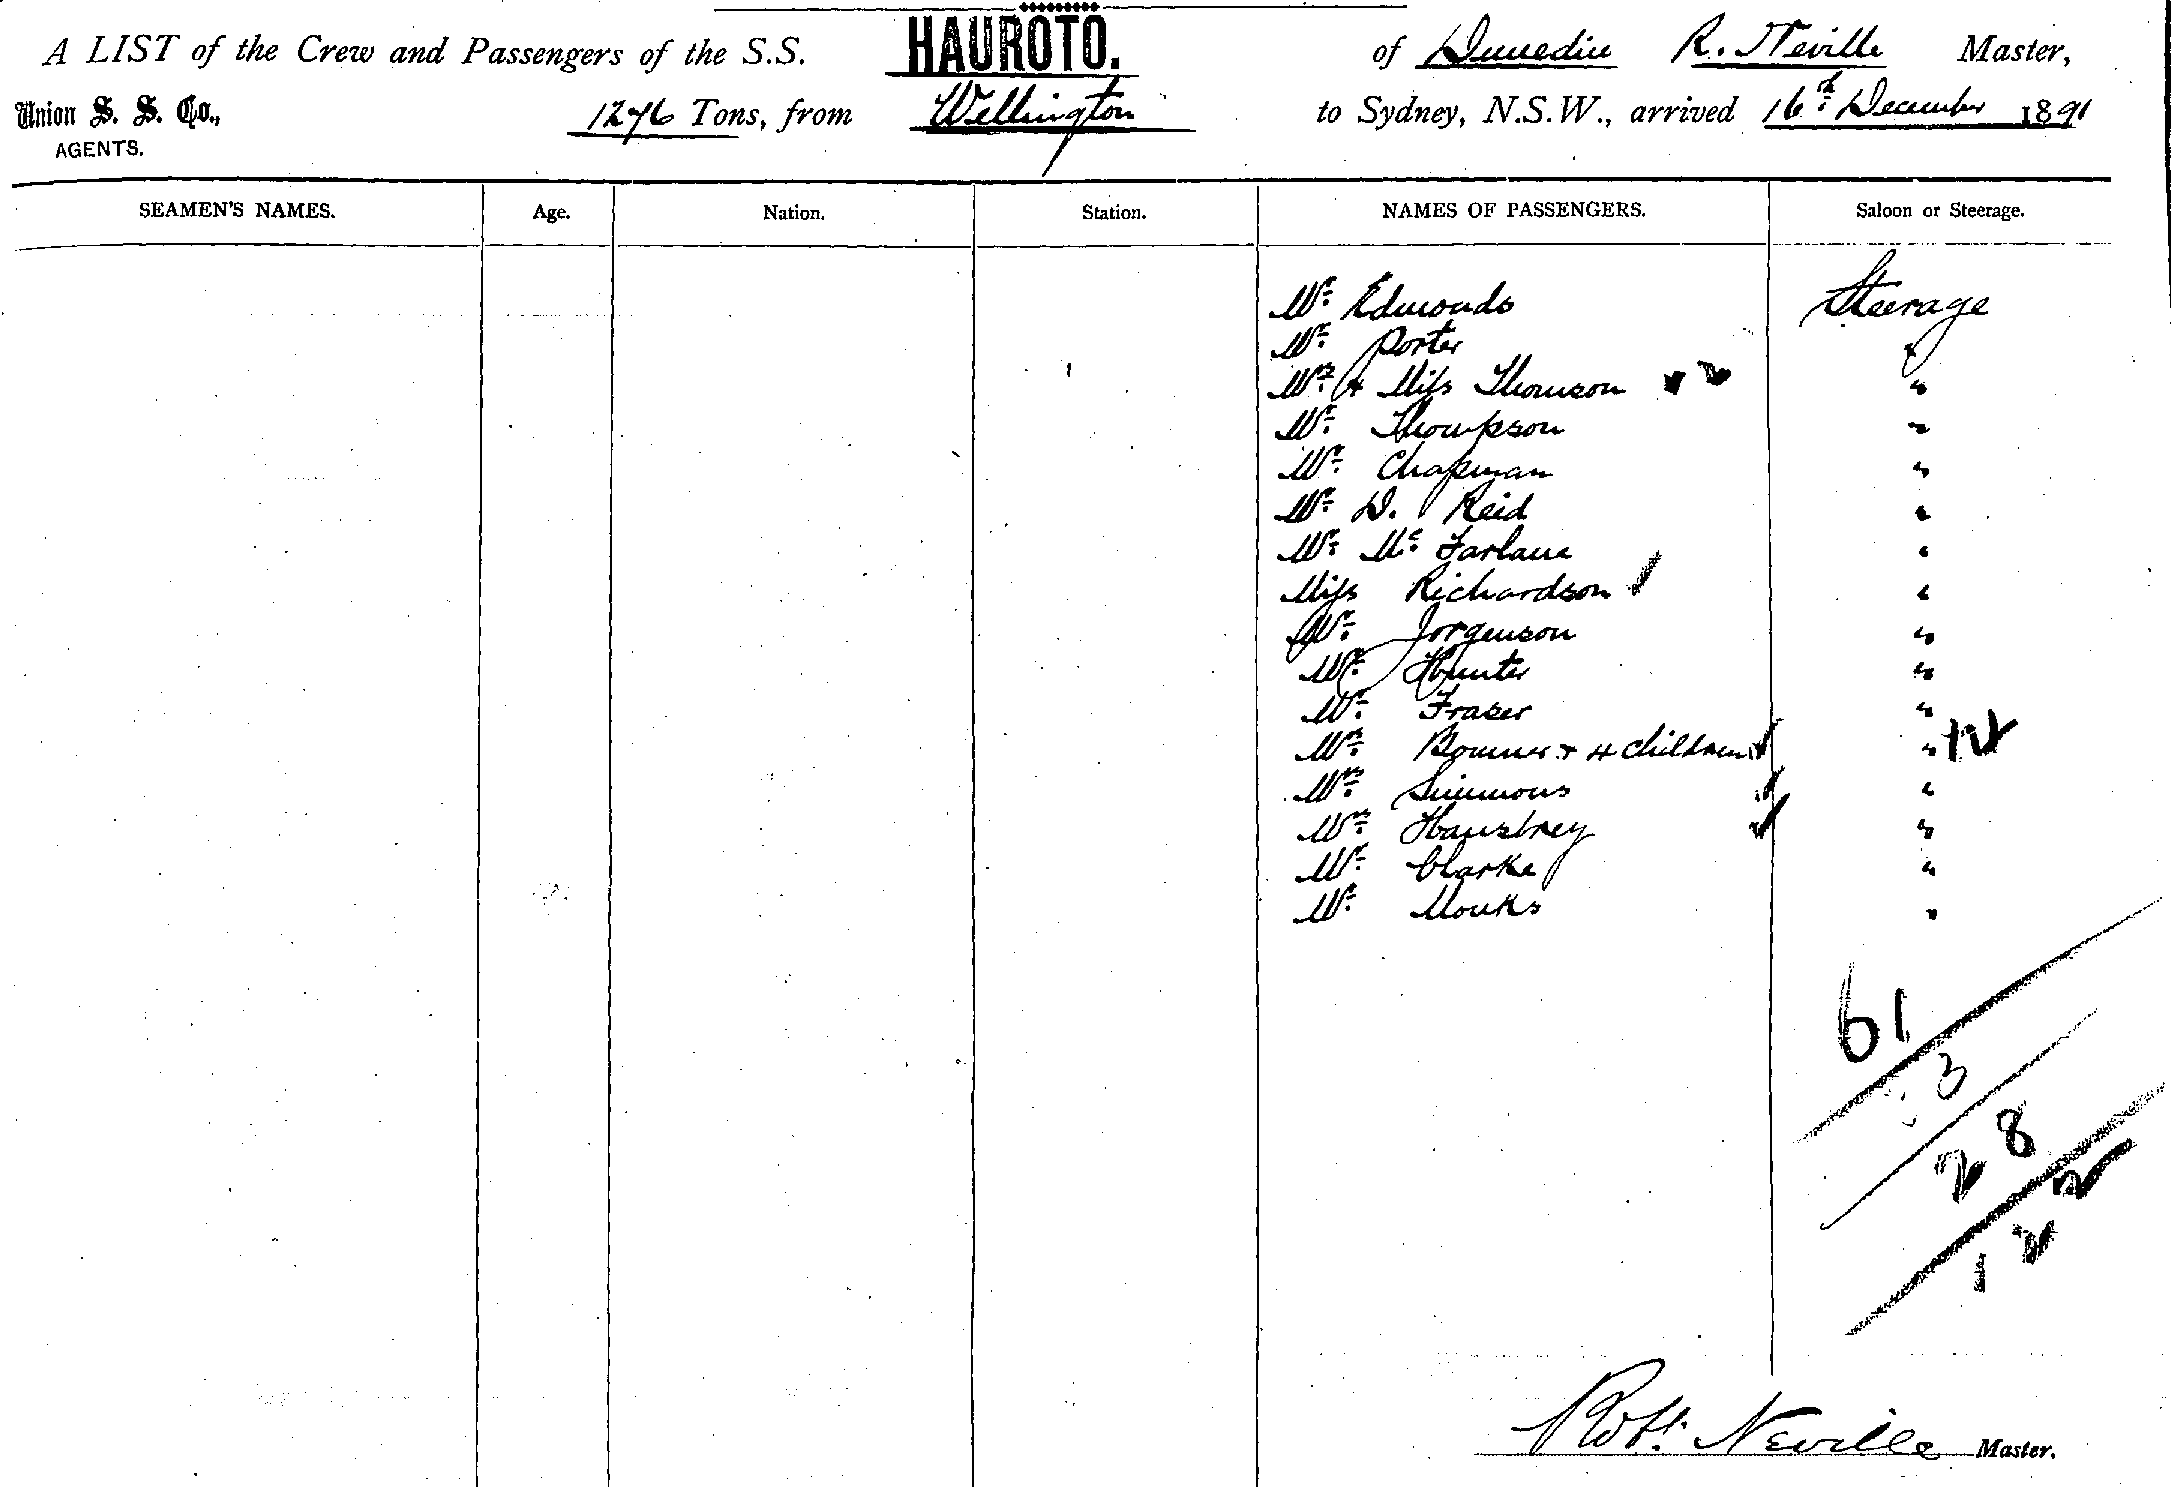 A LIST of the Crew and Passengers of the S.S. HAUROTO. of Dunedin R. Neville Master,
Union S. S. Co., 1276 Tons, from Wellington to Sydney, N.S.W., arrived 16th December 1891
AGENTS.
SEAMEN'S NAMES. Age. Nation. Station. NAMES OF PASSENGERS. Saloon or Steerage.
Mr. Edmonds Steerage
Mr. Porter "
Mrs. & Miss Thomson "
Mr. Thompson "
Mr. Chapman "
Mr. D. Reid "
Mr. Mc. Farlane "
Miss Richardson "
Mr. Jorgenson "
Mr. Hunter "
Mr. Fraser "
Mrs. + 4 children "
Mrs. Simmons "
Mrs. "
Mr. Clarke "
Mr. Monks "
61
3
28
2
12
Robt. Neville Master.